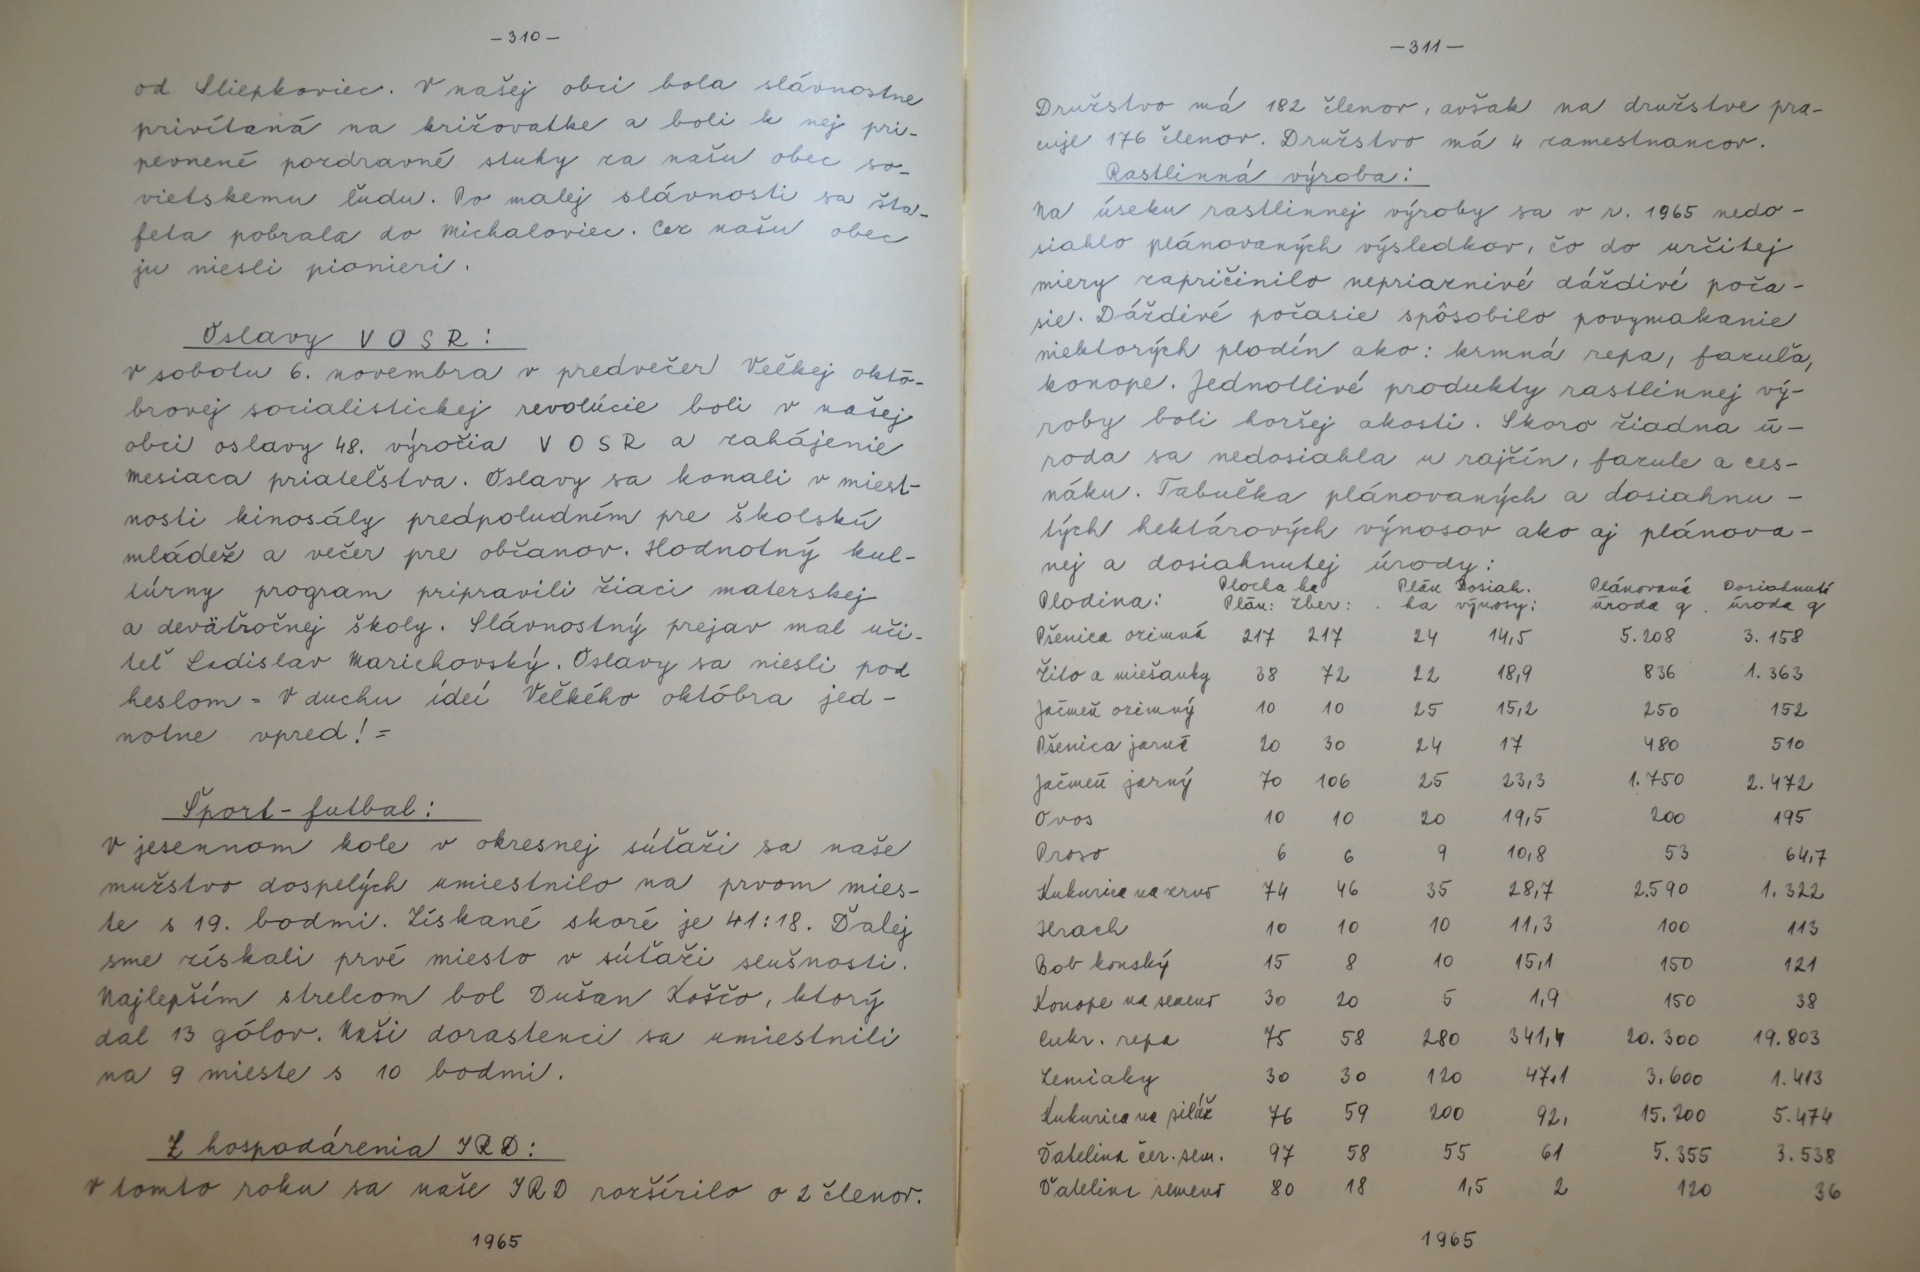 -310-
od Sliepkoviec. V našej obci bola slávnostne
privítaná na križovatke a boli k nej pri-
pevnené pozdravné stuhy za našu obec so-
vietskemu ľudu. Po malej slávnosti sa šta-
feta pobrala do Michaloviec. Cez našu obec
ju niesli pionieri.
Oslavy VOSR:
V sobotu 6. novembra v predvečer Veľkej októ-
brovej socialistickej revolúcie boli v našej
obci oslavy 48. výročia VOSR a zahájenie
mesiaca priateľstva. Oslavy sa konali v miest-
nosti kinosály predpoludním pre školskú
mládež a večer pre občanov. Hodnotný kul-
túrny program pripravili žiaci materskej
a deväťročnej školy. Slávnostný prejav mal uči-
teľ Ladislav Marichovský. Oslavy sa niesli pod
heslom = V duchu ídeí Veľkého októbra jed-
notne vpred! =
Šport-futbal:
V jesennom kole v okresnej súťaži sa naše
mužstvo dospelých umiestnilo na prvom mies-
te s 19. bodmi. Získané skoré je 41:18. Ďalej
sme získali prvé miesto v súťaži slušnosti.
Najlepším strelcom bol Dušan Koščo, ktorý
dal 13 gólov. Naši dorastenci sa umiestnili
na 9 mieste s 10 bodmi.
Z hospodárenia JRD:
V tomto roku sa naše JRD rozšírilo o 2 členov.
1965
-311-
Družstvo má 182 členov, avšak na družstve pra-
cuje 176 členov. Družstvo má 4 zamestnancov.
Rastlinná výroba:
Na úseku rastlinnej výroby sa v r. 1965 nedo-
siahlo plánovaných výsledkov, čo do určitej
miery zapričinilo nepriaznivé dáždivé poča-
sie. Dáždivé počasie spôsobilo povymakanie
niektorých plodín ako: krmná repa, fazuľa,
konope. Jednotlivé produkty rastlinnej vý-
roby boli horšej akosti. Skoro žiadna ú-
roda sa nedosiahla u rajčín, fazule a ces-
náku. Tabuľka plánovaných a dosiahnu-
tých hektárových výnosov ako aj plánova-
nej a dosiahnutej úrody:
Plocha ha Plán Dosiah. Plánovaná Dosiahnutá
Plodina: Plán: Zber: ha výnosy: úroda q úroda q
Pšenica ozimná 217 217 24 14,5 5.208 3.158
Žito a miešanky 38 72 22 18,9 836 1.363
Jačmeň ozimný 10 10 25 15,2 250 152
Pšenica jarná 20 30 24 17 480 510
Jačmeň jarný 70 106 25 23,3 1.750 2.472
Ovos 10 10 20 19,5 200 195
Proso 6 6 9 10,8 53 64,7
Kukurica na zrno 74 46 35 28,7 2.590 1.322
Hrach 10 10 10 11,3 100 113
Bob konský 15 8 10 15,1 150 121
Konope na semeno 30 20 5 1,9 150 38
Cukr. repa 75 58 280 341,4 20.300 19.803
Zemiaky 30 30 120 47,1 3.600 1.413
Kukurica na siláž 76 59 200 92, 15.200 5.474
Ďatelina čer. sem. 97 58 55 61 5.355 3.538
Ďatelina semeno 80 18 1,5 2 120 36
1965